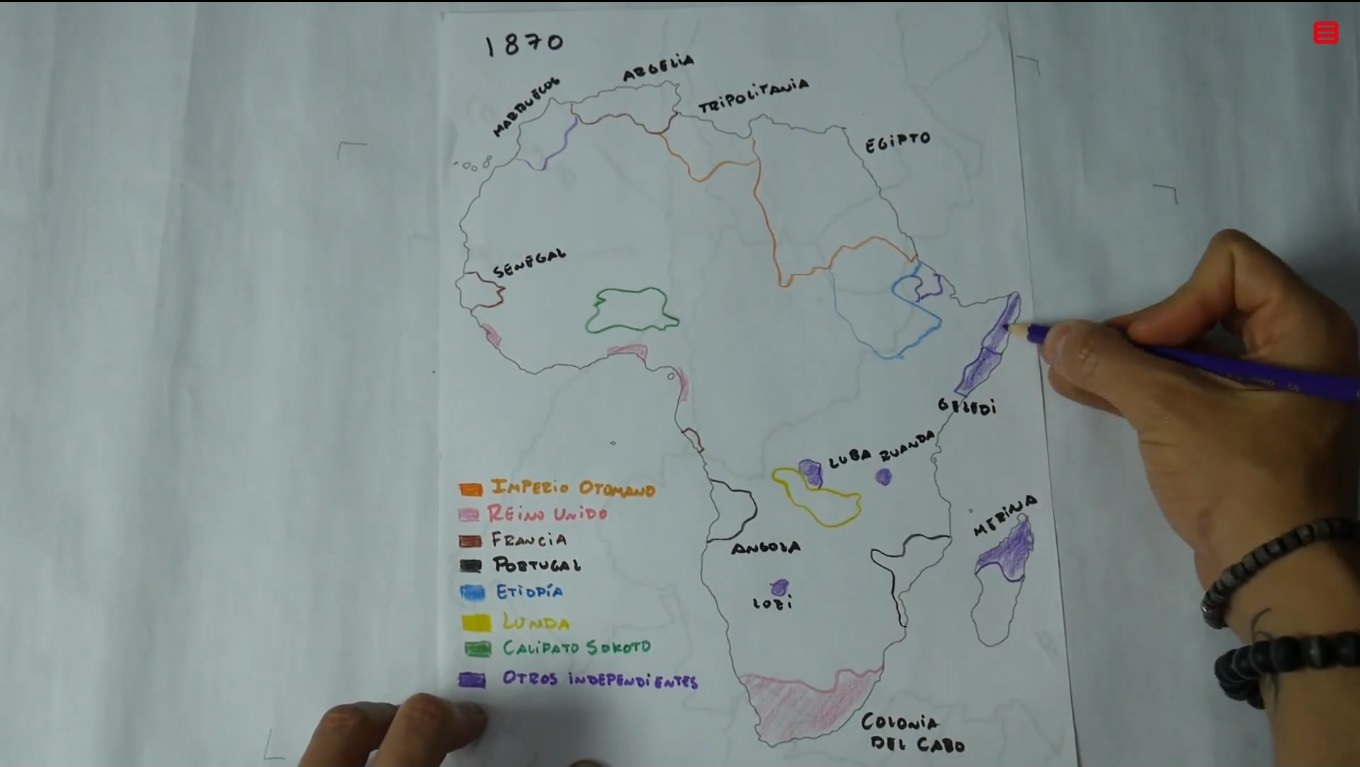 1870
MARRUECOS
ARGELIA
TRIPOLITANIA
EGIPTO
SENEGAL
GELEDI
LUBA
RUANDA
MERINA
ANGOLA
LOZI
COLONIA
DEL CABO
IMPERIO OTOMANO
REINO UNIDO
FRANCIA
PORTUGAL
ETIOPÍA
LUNDA
CALIFATO SOKOTO
OTROS INDEPENDIENTES